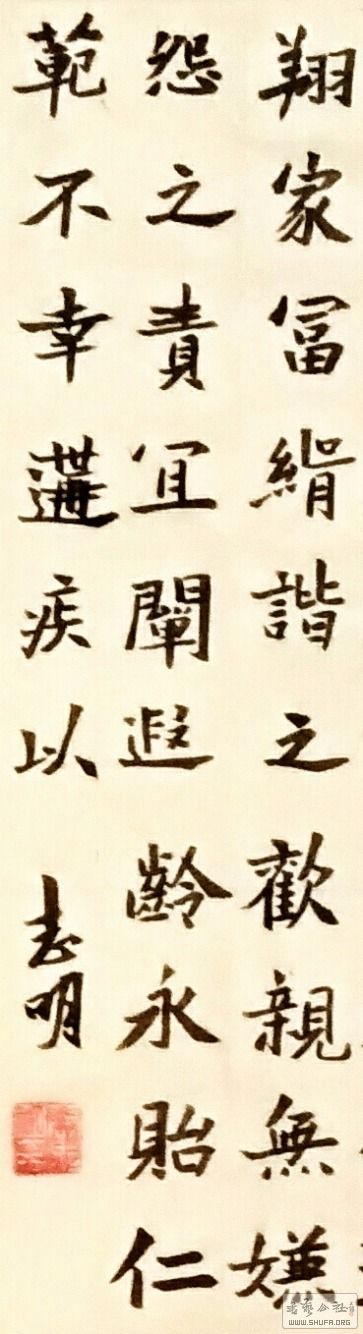 翔家冨緝諧之歡親無嫌
怨之責宜闡遐齡永貽仁
範不幸遘疾以
志明
書藝公社
WWW.SHUFA.ORG